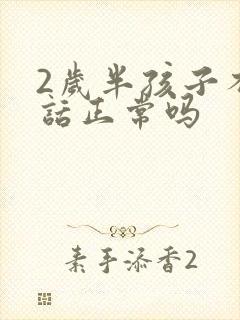 2歲半孩子不
話正常吗
素手添香2